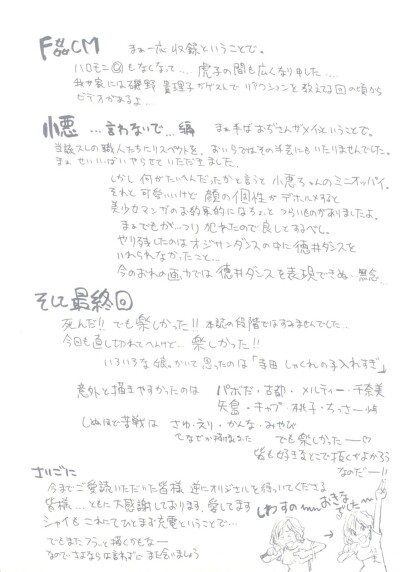 F㍿CM まぁ一応 収録ということで。
ハロモニ@もなくなって‥‥虎子の間も広くなりました‥‥
我が家には磯野貴理子がゲストで リアクションを教える回の頃から
ビデオがあるよ‥‥
小悪 …言わないで…編 まぁ手ばおぢさんがメインということで。
当該スレの職人たちにリスペクトを、おいらではその手芸にもいたりませんでした。
まぁ せいいっぱいやらせていただきました。
しかし 何がたいへんだったかと言うと 小悪ちゃんのミニオッパイ。
それと可愛いいけど 顔の個性がデホルメすると
美少女マンガのお約束的になるちょっとつらいものがありましたよ。
まぁでもが…っつり 犯れたので良しとするべし。
やり残したのはオジサンダンスの中に徳井ダンスを
いれられなかったこと…
今のおれの画力では 徳井ダンスを表現できぬ・無念…
そして最終回
死んだ!! でも楽しかった!! 本誌の段階ではすみませんでした…
今回も直し切れてへんけど… 楽しかった!!
いろいろな娘。かいて思ったのは「寺田 しゃくれの子入れすぎ」
意外と描きやすかったのは パポだ・古都・メルティー・千奈美
矢島・キャプ・桃子・ちっさー 等
しぬほど苦戦は さゆ・えり・かんな・みやび
でも楽しかったー♡
皆も好きなとこで抜くがよかろう
なのだー!!
さいごに
今までご愛読いただいた皆様 逆にオリジナルを待っててくださる
皆様…ともに大感謝しております、愛してます
シャイもこれにてひとまず充電ということで…
でもまたフラっと描くかもなー
なのでさよならは言わずに また会いましょう
しわすの
おきな
でした